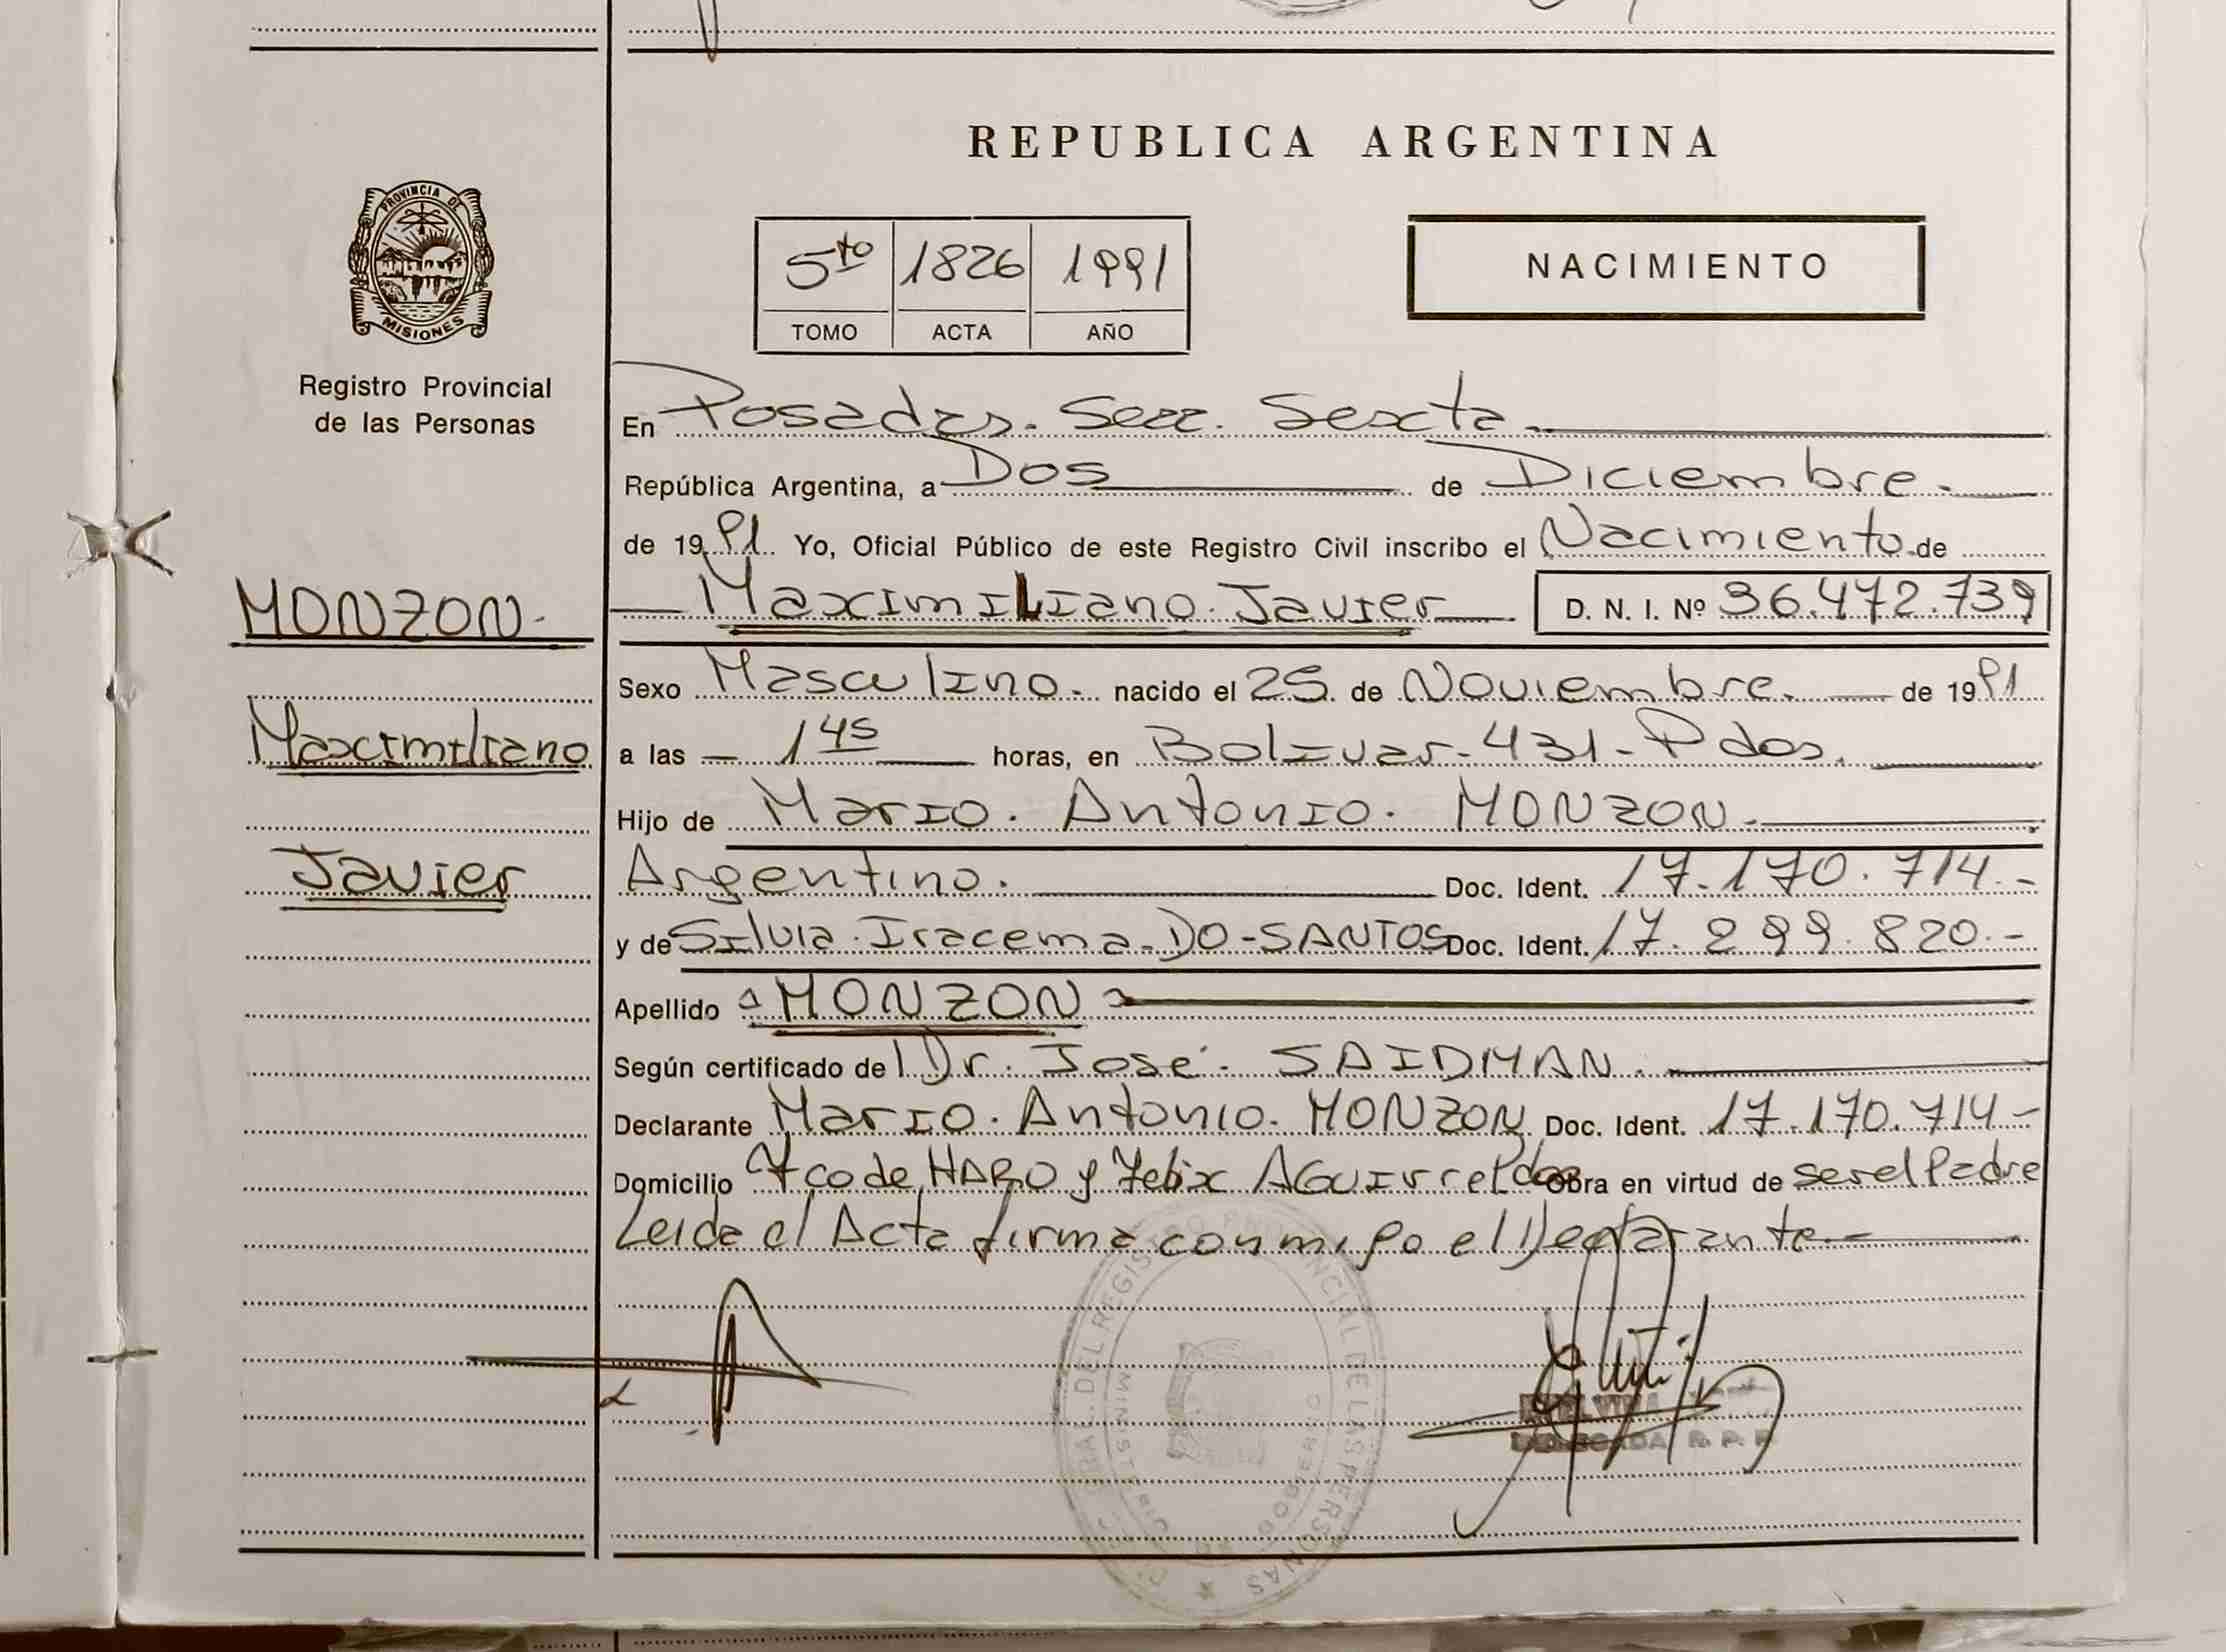 REPUBLICA ARGENTINA
PROVINCIA DE
MISIONES
Registro Provincial
de las Personas
5to 1826 1991
TOMO ACTA AÑO
NACIMIENTO
En Posadas. Secc. Sexta.
República Argentina, a Dos de Diciembre.
de 1991. Yo, Oficial Público de este Registro Civil inscribo el Nacimiento de
MONZON.
Maximiliano Javier D. N. I. Nº 36.472.739
Sexo Masculino. nacido el 25. de Noviembre. de 1991
Maximiliano
a las 1 45 horas, en Bolivar. 431 - Pdas.
Hijo de Mario. Antonio. MONZON.
Javier
Argentino. Doc. Ident. 17.170.714.-
y de Silvia. Iracema. DO-SANTOS Doc. Ident. 17.299.820.-
Apellido MONZON
Según certificado de Dr. José. SAIDMAN.
Declarante Mario. Antonio. MONZON. Doc. Ident. 17.170.714-
Domicilio Fco de HARO y Felix AGUIrre Pdas Obra en virtud de ser el Padre
Leida el Acta firma conmigo el Declarante.-
DEL REGISTRO PROVINCIAL DE LAS PERSONAS
MINISTERIO GOBIERNO
R. P. P.